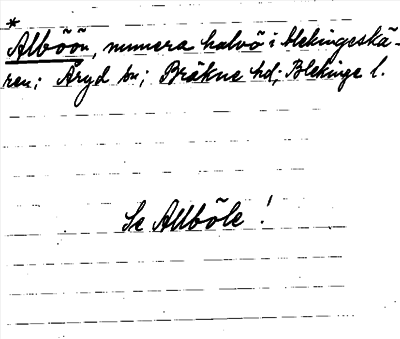 *
Alböön, numera halvö i blekingeskä-
ren; Åryd sn; Bräkne hd; Blekinge l.
Se Allböle!